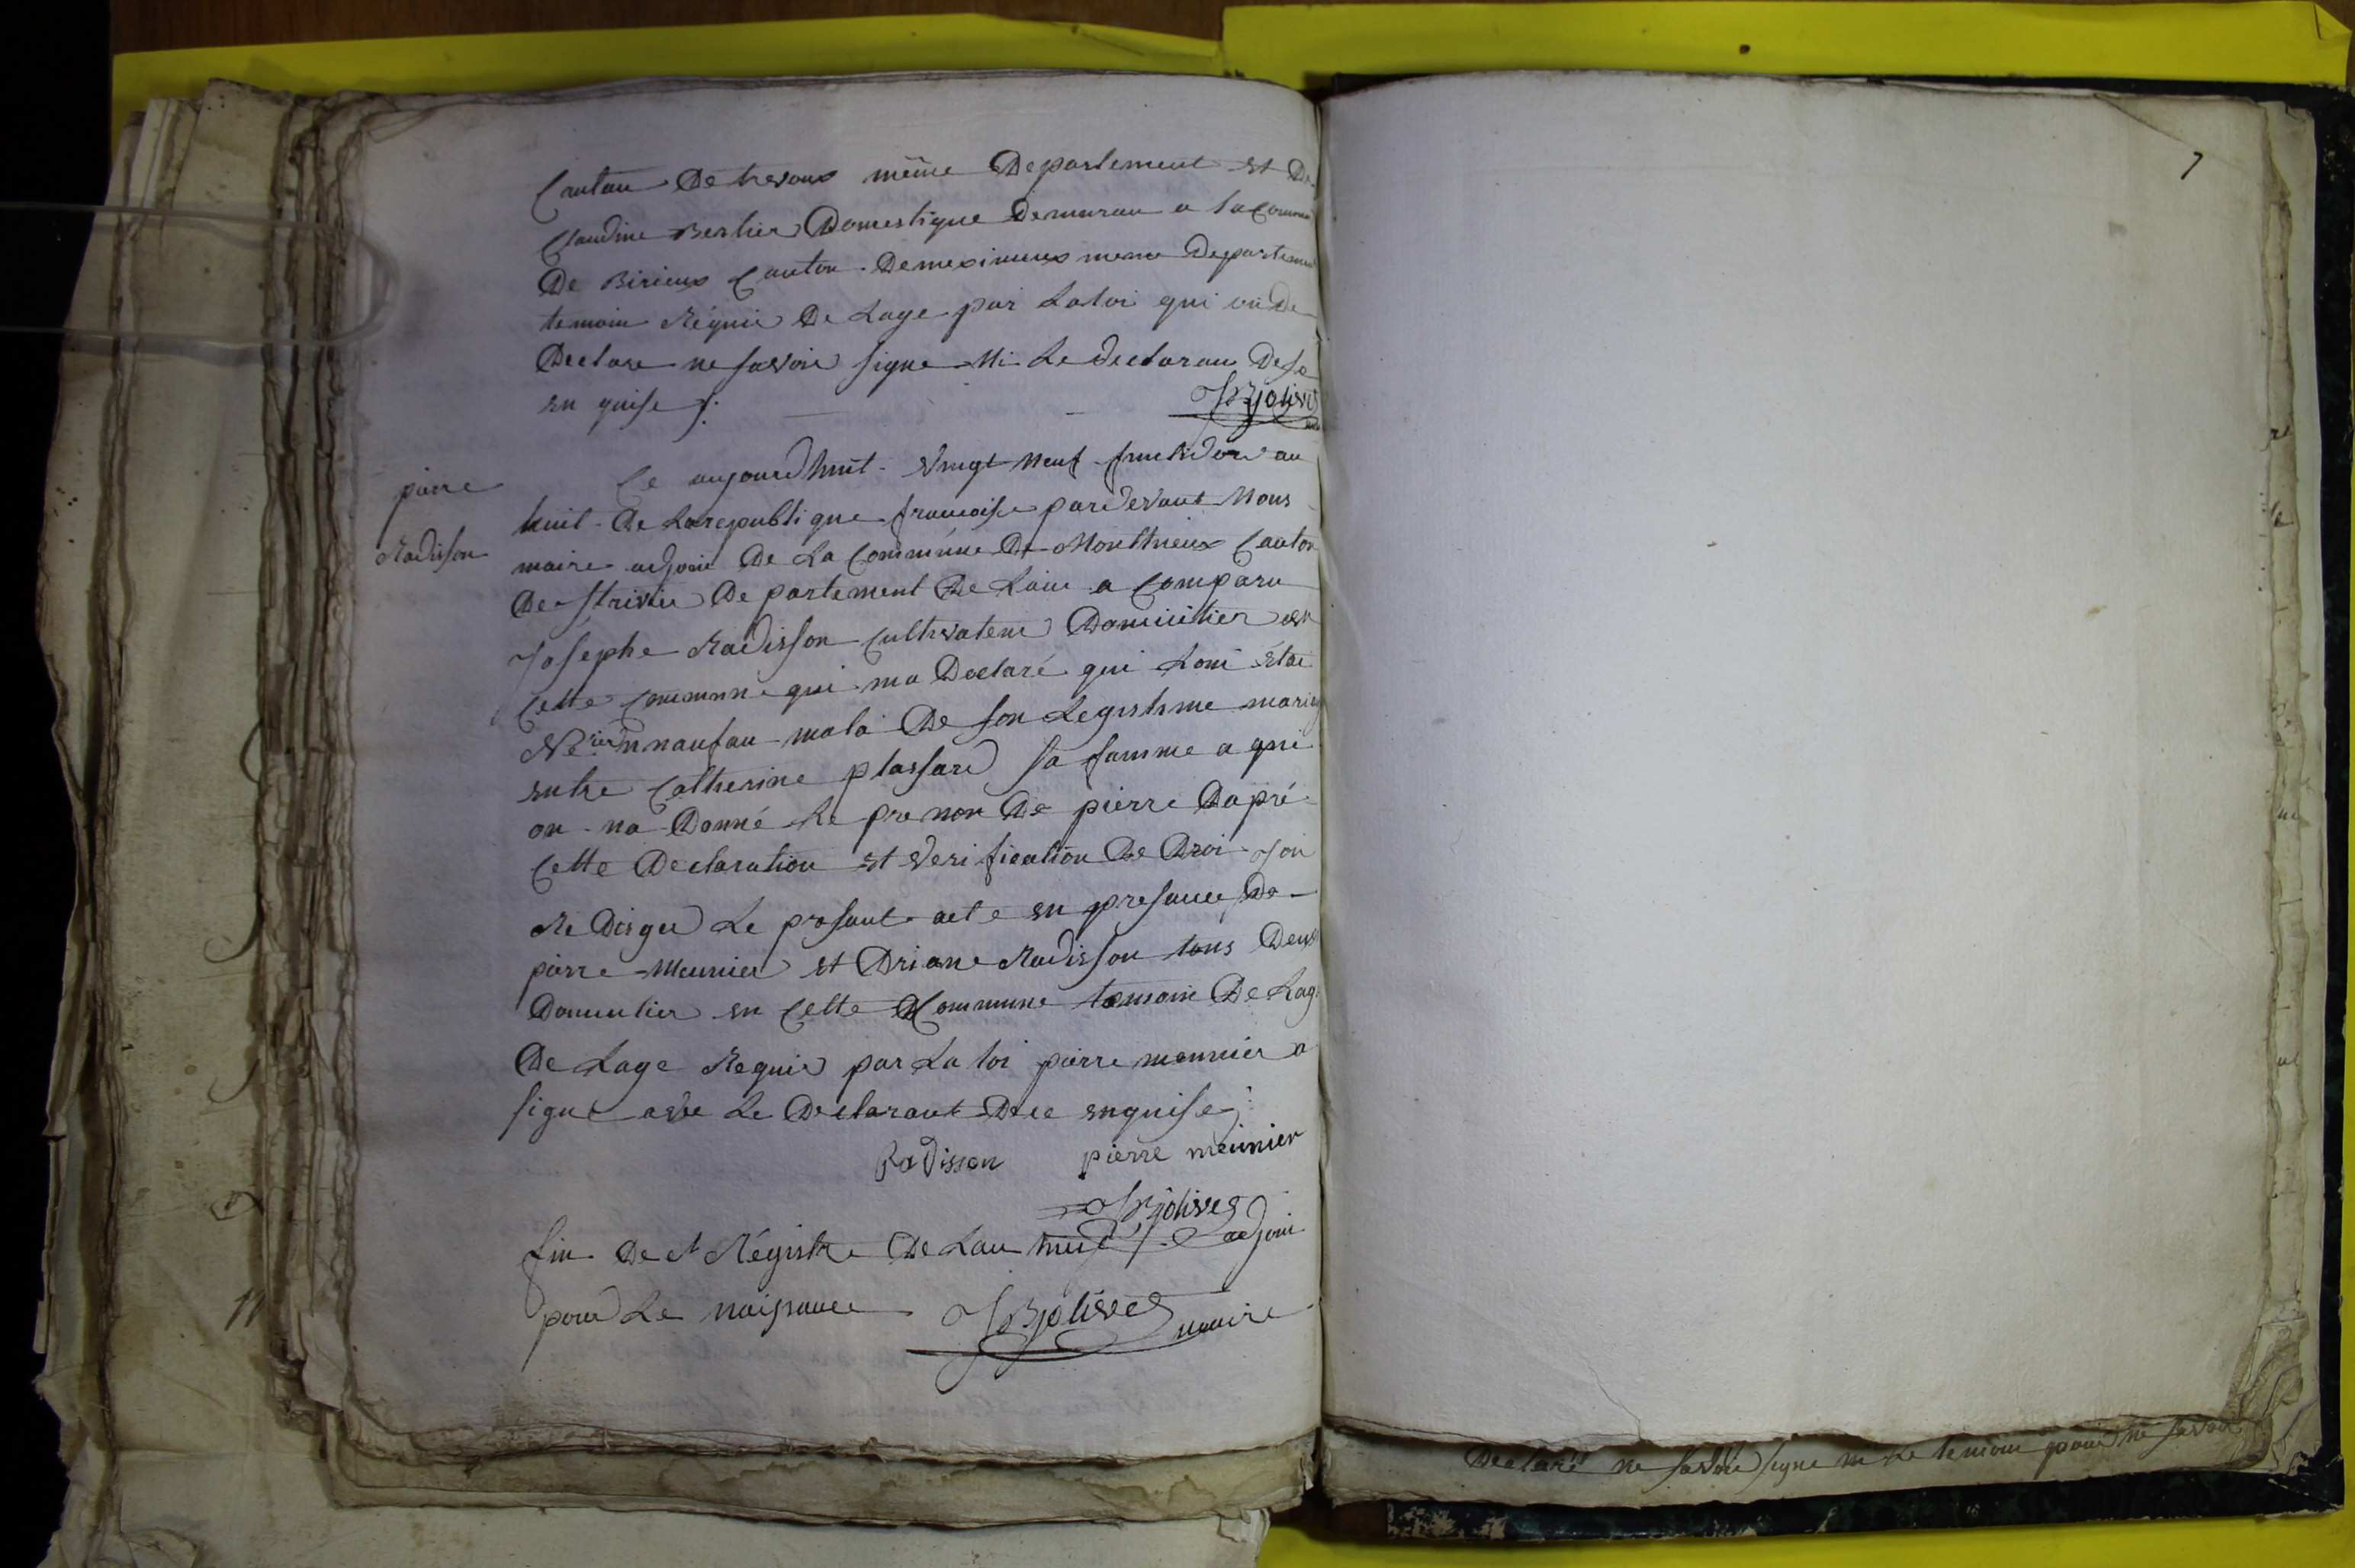 Cantau De trevoux même Departement et De
Claudine Berlier Domestique Demuran a la Commu
De Birieux Canton Demeximieux meme Departemen
temoin Réquie De Lage par Laloi qui on De
Declare ne savoir signe Ni Le declaran De se
en quise /:
JBjolivet
Ce aujourdhuit vingt neuf fructidore an
pierre
huil De Larepublique francoise pardevant Nous
Radisson
maire adjoin De La Commune De Monttrieux Canton
De strivie De partement De Lain a Comparu
Josephe Radisson Cultivateur Domicilier en
Cette Commune qui ma Declaré qui Loui étai
Né hier nnanfan mala De son Legistime mariag
entre Catherine plassard sa famme a qui
on na Donné Le prenon De pierre Dapré
Cette Declaration et verification De Droi Jon
Re Diger Le prosant acte en presance De
pierre Meunier et Driane Radisson tous Deux
Domicilier en Cette Commune temoin De Lag
De Lage Requie par La loi pierre meunier a
signe avec Le Declarant De ce enquise /:
Radisson pierre meunier
JBjolivet
fin De st Régistre De Lan huit /. adjoin
pour Le naissance JBjolivet maire
7
Declaré ne savoir signe ni Le temoin pour ne savoir